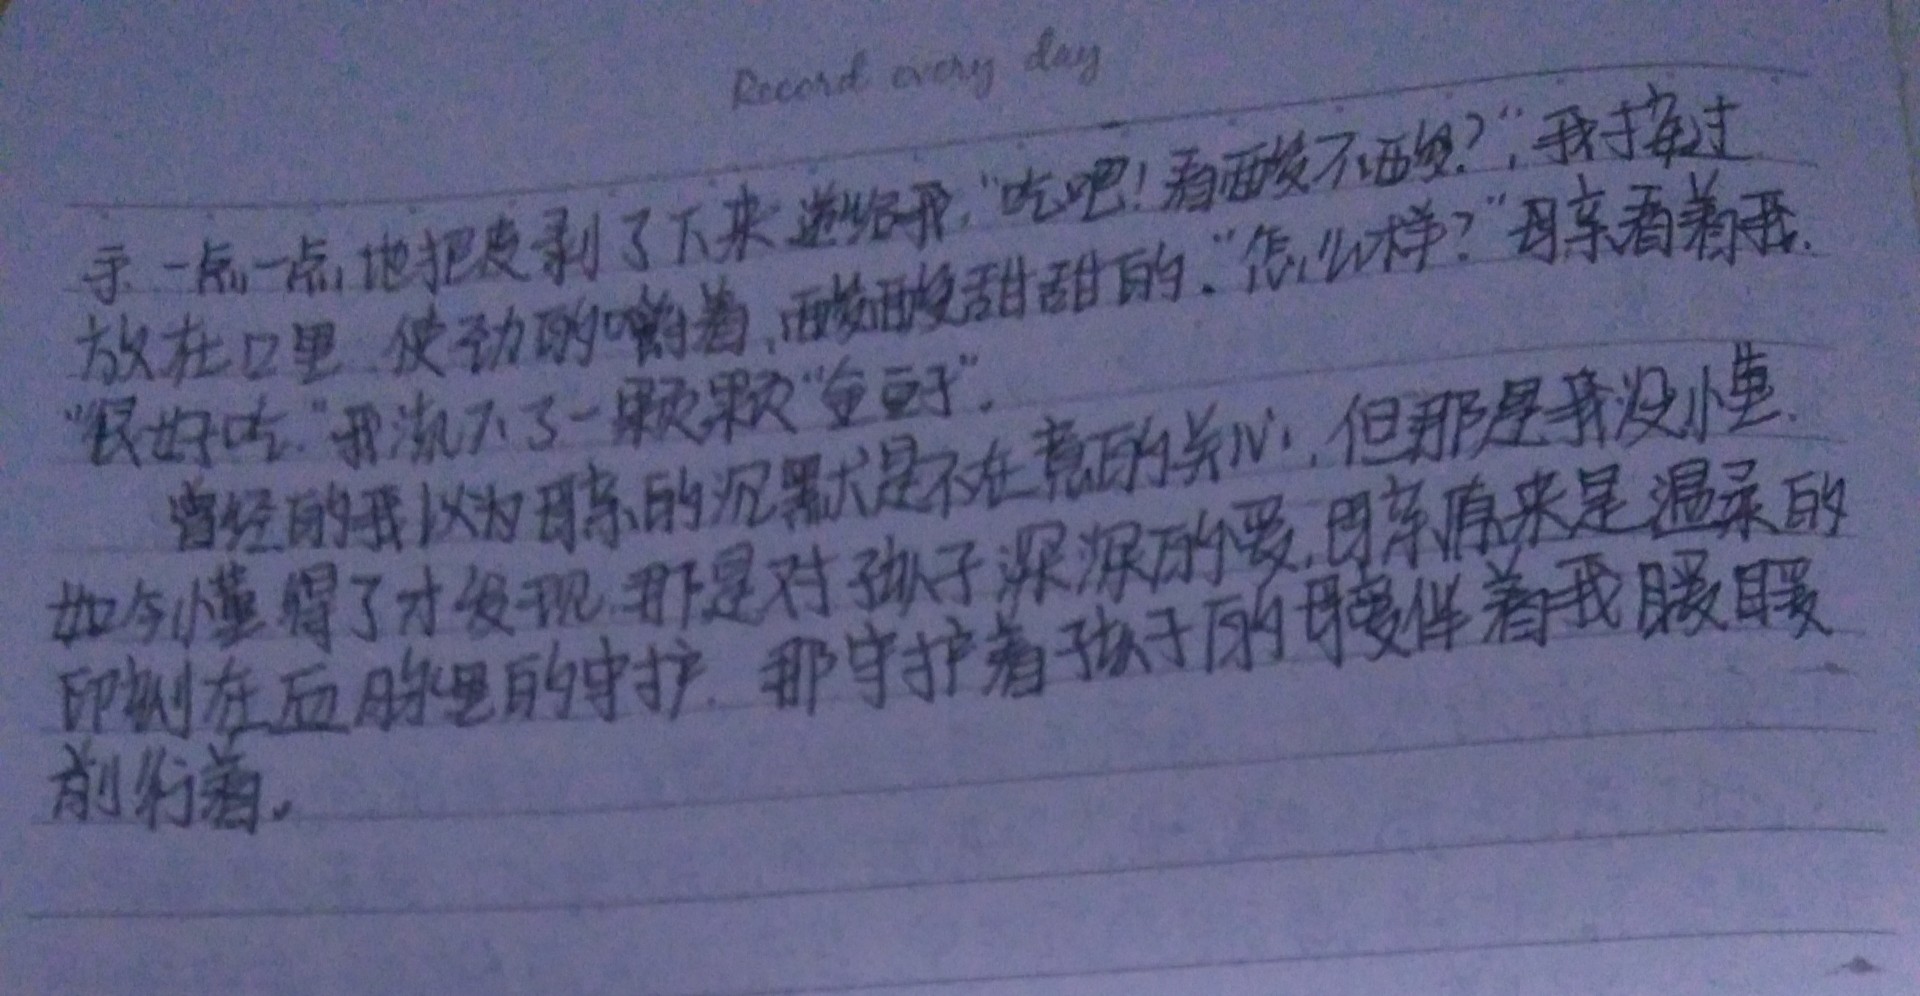 Record every day
示一点一点地把皮剥了下来递给我,“吃吧！看酸不酸?”,我接过
放在口里.使劲的嚼着,酸酸甜甜的.“怎么样?”母亲看着我.
“很好吃.”我流下了一颗颗“金豆子”.
曾经的我以为母亲的沉默是不在意的关心,但那是我没懂.
如今懂得了才发现.那是对孩子深深的爱,母亲原来是温柔的
印刻在血脉里的守护.那守护着孩子的暖伴着我暖暖
前行着。